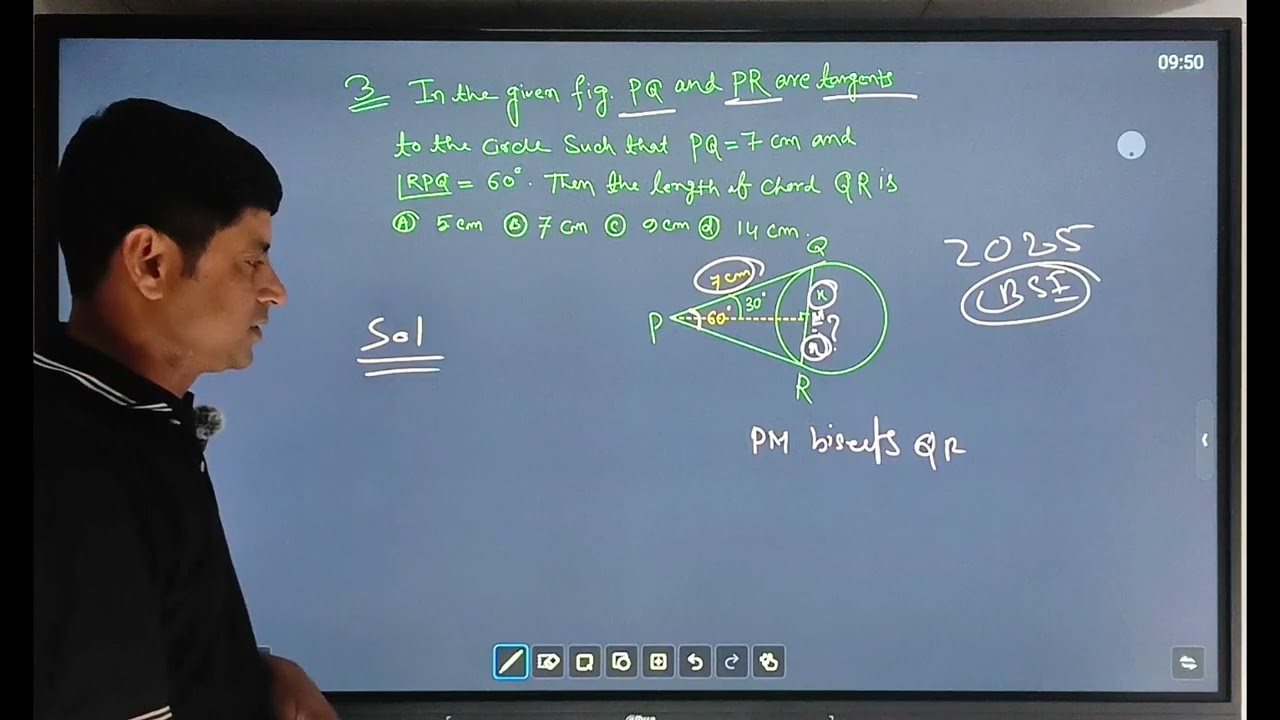 09:50
3 In the given fig. PQ and PR are tangents
to the circle such that PQ = 7 cm and
∠RPQ = 60°. Then the length of chord QR is
(A) 5 cm (B) 7 cm (C) 9 cm (d) 14 cm.
2025
CBSE
Q
7 cm
30°
x
P
60°
M
?
x
R
Sol
PM bisects QR